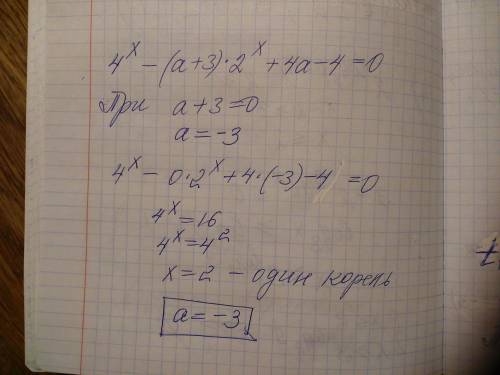 4^x − (a+3)·2^x + 4a − 4 = 0
При a + 3 = 0
a = −3
4^x − 0·2^x + 4·(−3) − 4 = 0
4^x = 16
4^x = 4^2
x = 2 – один корень
a = −3